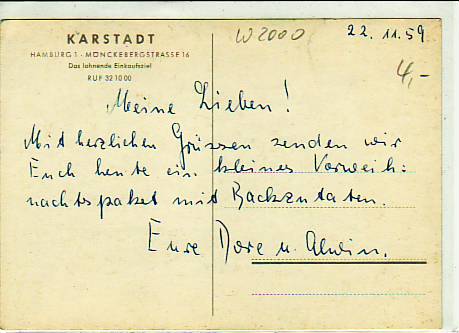 KARSTADT
HAMBURG 1 - MÖNCKEBERGSTRASSE 16
Das lohnende Einkaufsziel
RUF 32 10 00
W2000
22.11.59
4,-
Meine Lieben!
Mit herzlichen Grüssen senden wir
Euch heute ein kleines Vorweih:
nachtspaket mit Backzutaten.
Eure Dore u. Alwin.